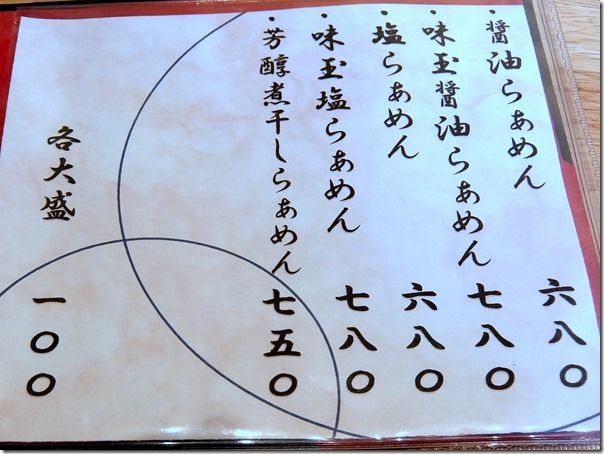 ・醤油らぁめん 六八〇
・味玉醤油らぁめん 七八〇
・塩らぁめん 六八〇
・味玉塩らぁめん 七八〇
・芳醇煮干しらぁめん 七五〇
各大盛 一〇〇